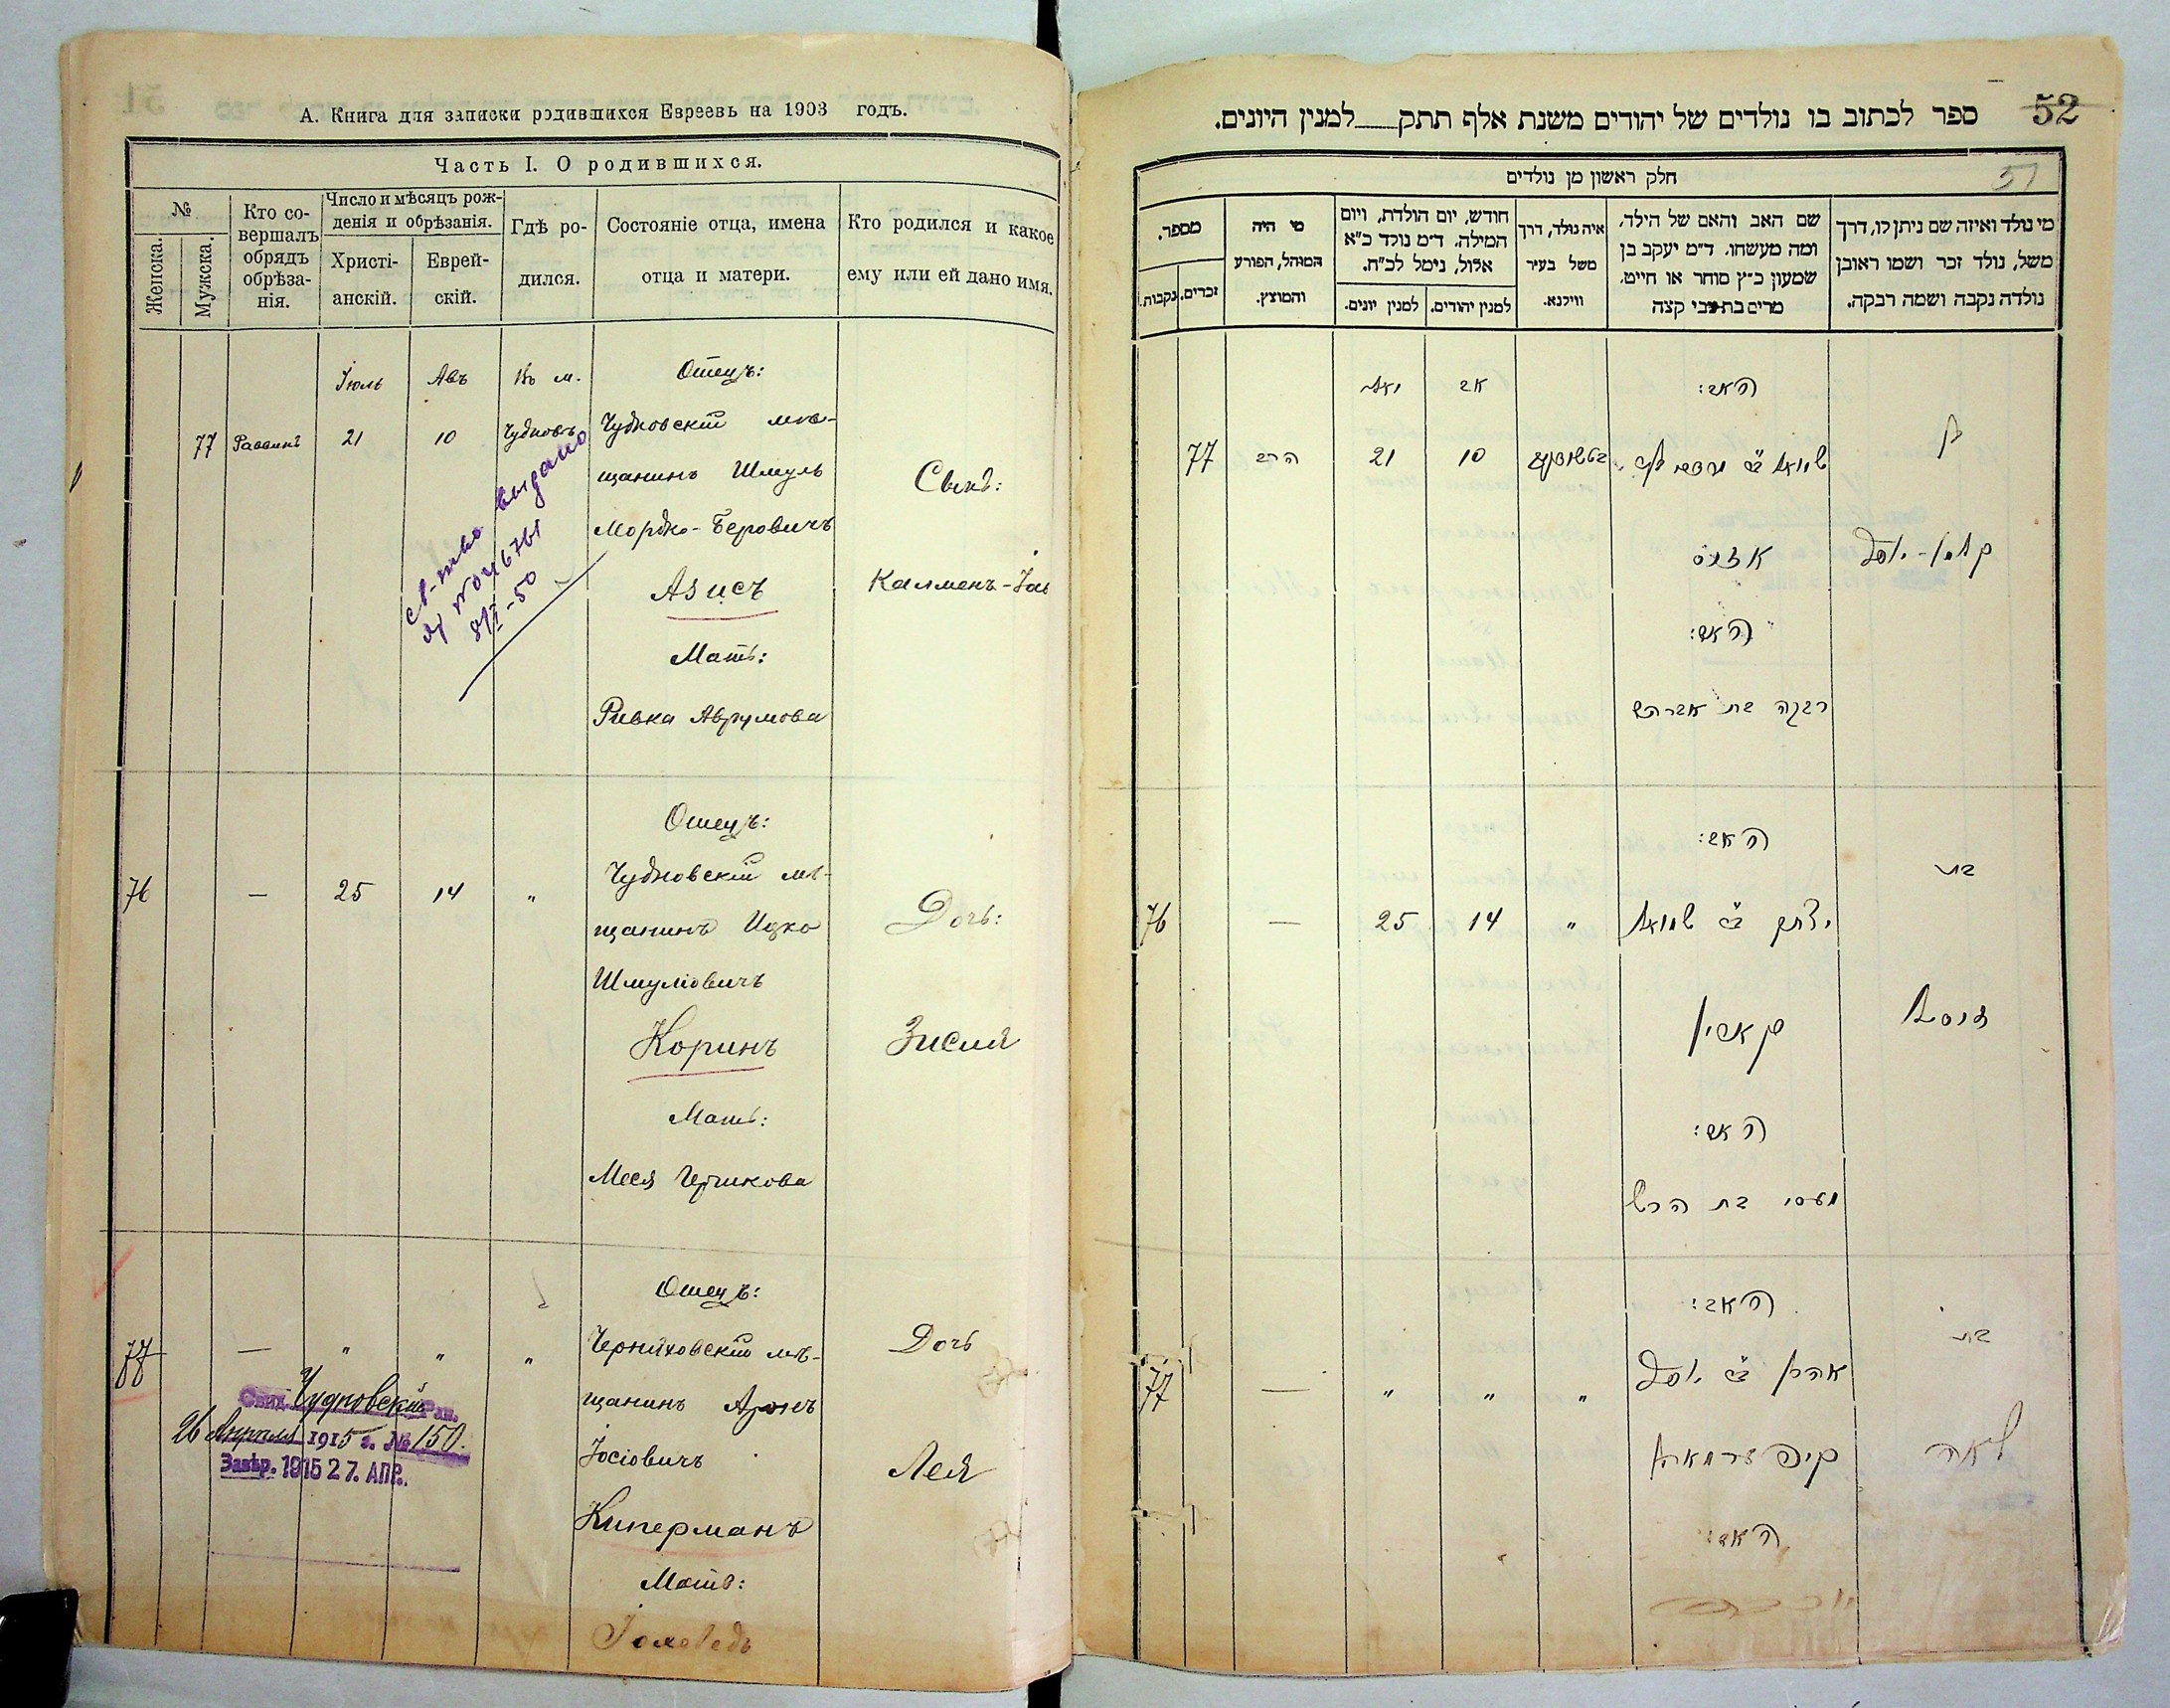 А. Книга для записки родившихся Евреевъ на 1903 годъ.
Часть I. О родившихся.
№
Женска.
Мужска.
Кто со-
вершалъ
обрядъ
обрѣза-
нія.
Число и мѣсяцъ рож-
денія и обрѣзанія.
Христі-
анскій.
Еврей-
скій.
Гдѣ ро-
дился.
Состояніе отца, имена
отца и матери.
Кто родился и какое
ему или ей дано имя.
77
Раввинъ
Іюль
21
Авъ
10
Въ м.
Чудновъ
Отецъ:
Чудновскій мѣ-
щанинъ Шмуль
Мордко-Беровичъ
Азисъ
Мать:
Ривка Аврумова
Сынъ:
Калменъ-Іос
св-тво выдано
8/I-50
76
—
25
14
"
Отецъ:
Чудновскій мѣ-
щанинъ Ицко
Шмуліовичъ
Коринъ
Мать:
Меся Гершкова
Дочь:
Зисля
77
—
"
"
"
Отецъ:
Черняховскій мѣ-
щанинъ Аронъ
Іосіовичъ
Киперманъ
Мать:
Іохеведъ
Дочь
Лея
Свид. Чудновскій Рав.
26 Апрѣля 1915 г. № 150.
Завѣр. 1915 27. АПР.
52
ספר לכתוב בו נולדים של יהודים משנת אלף תתק למנין היונים.
51
חלק ראשון מן נולדים
מספר.
נקבות.
זכרים.
מי היה
המוהל, הפורע
והמוצץ.
חודש, יום הולדת, ויום
המילה. ד״מ נולד כ״א
אלול, נימל לכ״ח.
למנין יונים.
למנין יהודים.
איה נולד, דרך
משל בעיר
ווילנא.
שם האב והאם של הילד,
ומה מעשהו. ד״מ יעקב בן
שמעון כ״ץ סוחר או חייט,
מרים בת צבי קצה
מי נולד ואיזה שם ניתן לו, דרך
משל, נולד זכר ושמו ראובן
נולדה נקבה ושמה רבקה.
77
הרב
יולי
21
אב
10
האב:
אזיס
האם:
רבקה בת אברהם
בן
קלמן-יוסף
76
—
25
14
"
האב:
יצחק ב״ר שמואל
קארין
האם:
מעסי בת הרש
בת
זיסל
77
—
"
"
"
האב:
אהרן ב״ר יוסף
קיפערמאן
האם:
בת
לאה